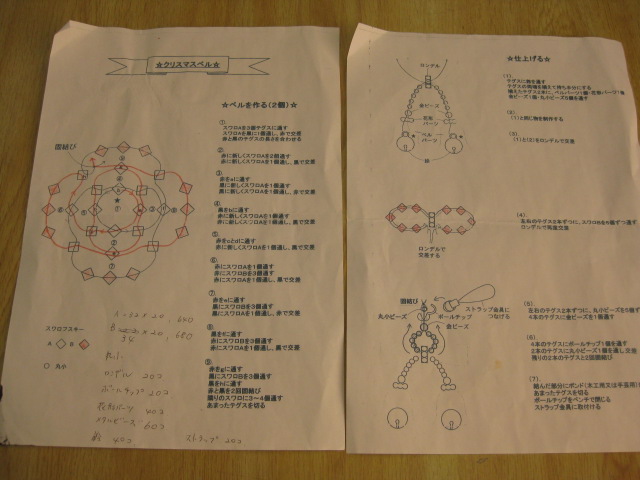 ☆クリスマスベル☆
☆ベルを作る(2個)☆
①
スワロAを3個テグスに通す
スワロAを黒に1個通し、赤で交差
赤と黒のテグスの長さを合わせる
②
赤に新しくスワロAを2個通す
赤に新しくスワロAを1個通し、黒で交差
③
赤をaに通す
黒に新しくスワロAを1個通す
黒に新しくスワロAを1個通し、赤で交差
④
黒をbに通す
赤に新しくスワロAを1個通す
赤に新しくスワロAを1個通し、黒で交差
⑤
赤をcとdに通す
赤に新しくスワロAを1個通し、黒で交差
⑥
赤にスワロAを1個通す
赤にスワロBを3個通す
赤にスワロAを1個通し、黒で交差
⑦
赤をeに通す
黒にスワロBを3個通す
黒にスワロAを1個通し、赤で交差
⑧
黒をfに通す
赤にスワロBを3個通す
赤にスワロAを1個通し、黒で交差
⑨
赤をgに通す
黒にスワロBを3個通す
黒をhに通す
赤と黒を2回固結び
隣りのスワロに3~4個通す
あまったテグスを切る
固結び
スワロフスキー
A B
丸小
ロンデル 20コ
ボールチップ 20コ
花形パーツ 40コ
メタルビーズ 60コ
鈴 40コ
ストラップ 20コ
☆仕上げる☆
ロンデル
金ビーズ
花形
パーツ
ベル
パーツ
(1)
テグスに鈴を通す
(2)
(1)と同じ物を制作する
(3)
(1)と(2)をロンデルで交差
ロンデルで
交差する
(4)
左右のテグス2本ずつに、スワロBを5個ずつ通す
ロンデルで再度交差
固結び
丸小ビーズ
ボールチップ
金ビーズ
ストラップ金具に
つなげる
(5)
左右のテグス2本ずつに、丸小ビーズを5個ず
4本のテグスに金ビーズを1個通す
(6)
4本のテグスにボールチップ1個を通す
2本のテグスに丸小ビーズ1個を通し交差
残りの2本のテグスと2回固結び
(7)
結んだ部分にボンド(木工用又は手芸用)
あまったテグスを切る
ボールチップをペンチで閉じる
ストラップ金具に取付ける